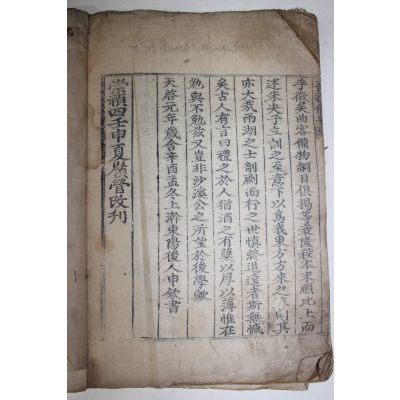 乎微矣曲客備物綱目俱擧等義隆殺本末順比上而
述朱夫子立訓之至意下以爲我東方方來之 則其
亦大哉兩湖之士剞劂而行之世愼終追遠者斯無憾
矣古人有言曰禮之於人猶酒之有糱以厚以薄惟在
勉與不勉玆又豈非沙溪公之所望於後學歟
天啓元年歲舍辛酉孟冬上澣東陽後人申欽書
崇禎四壬申夏嶺營改刊